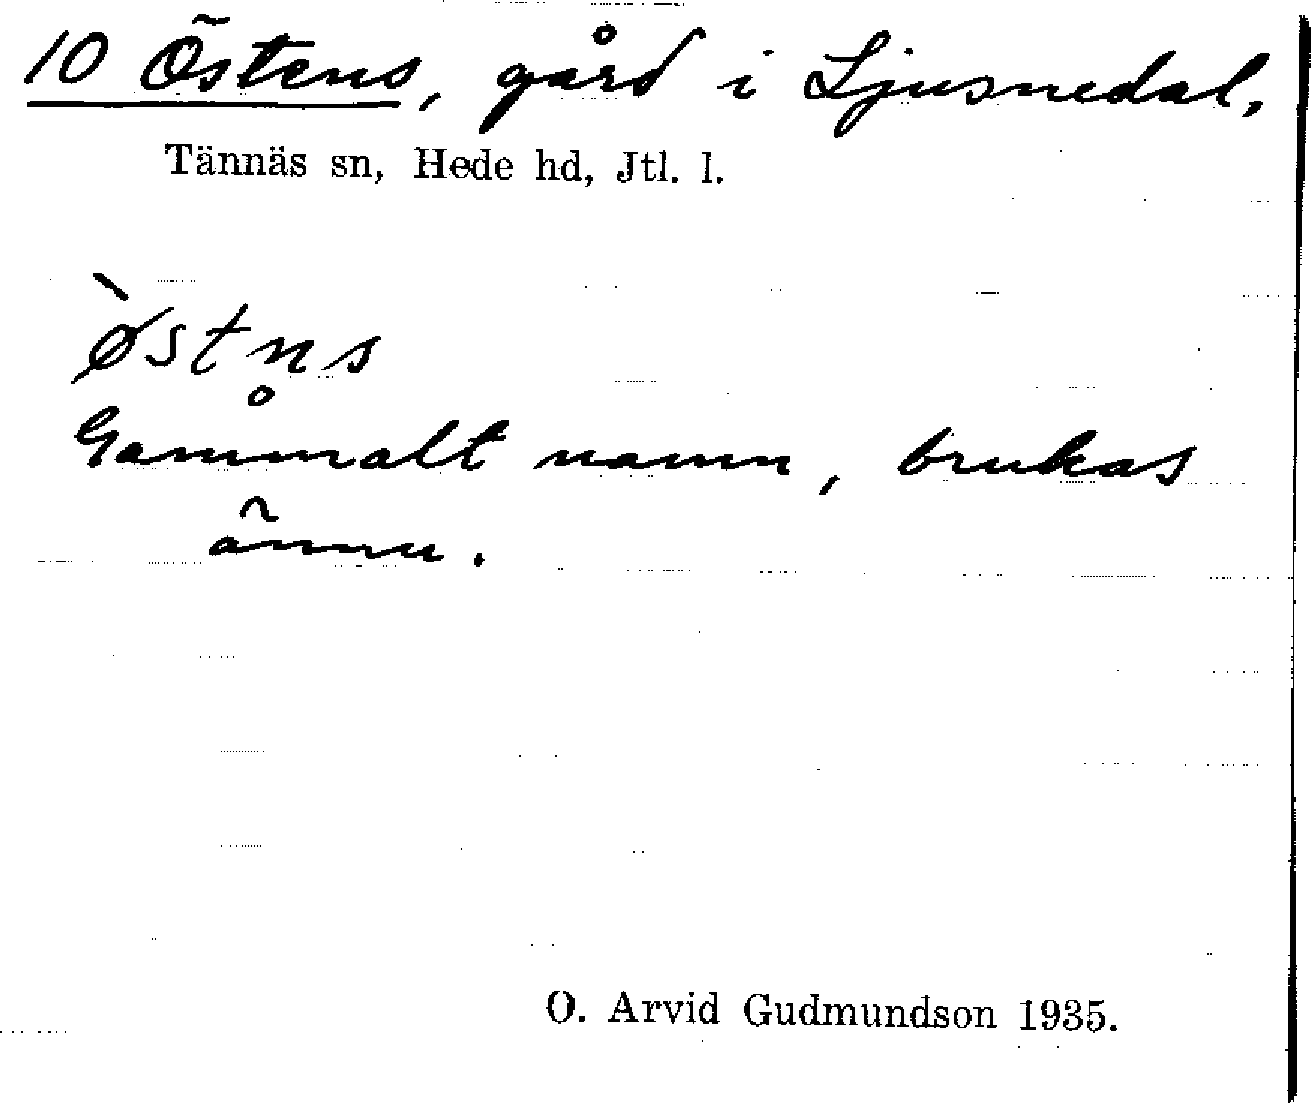 10 Östens, gård i Ljusnedal,
Tännäs sn, Hede hd, Jtl. l.
ø̀stn̥s
Gammalt namn, brukas
ännu.
O. Arvid Gudmundson 1935.